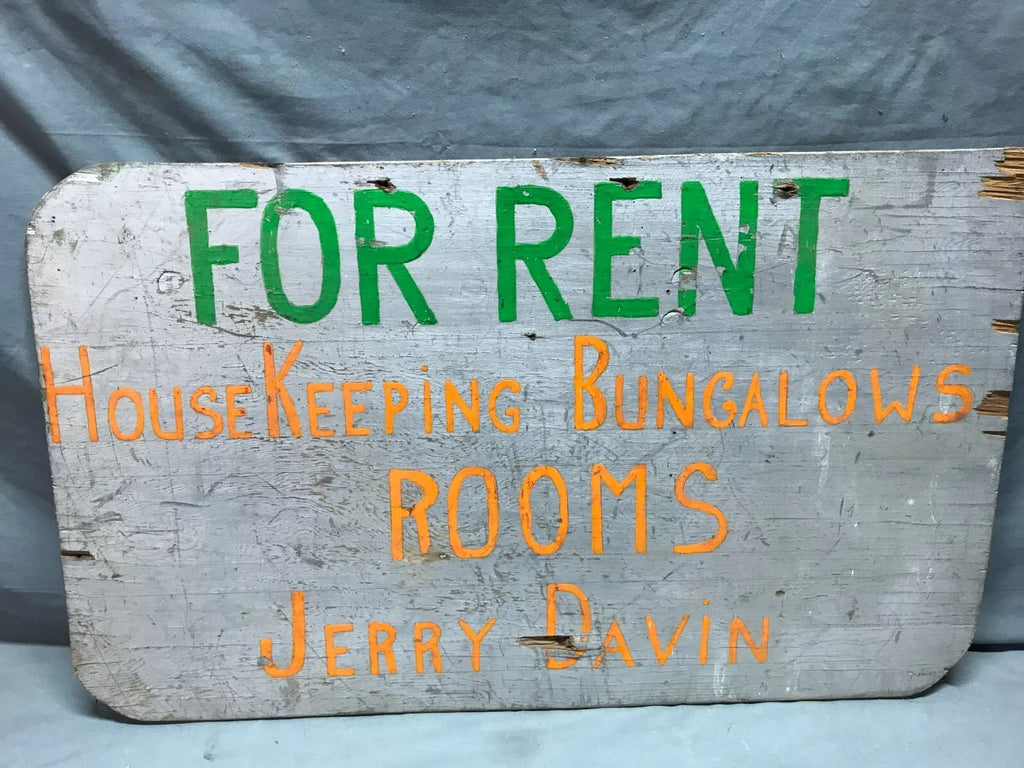 FOR RENT
HOUSEKEEPiNG BUNGALOWS
ROOMS
JERRY DAViN